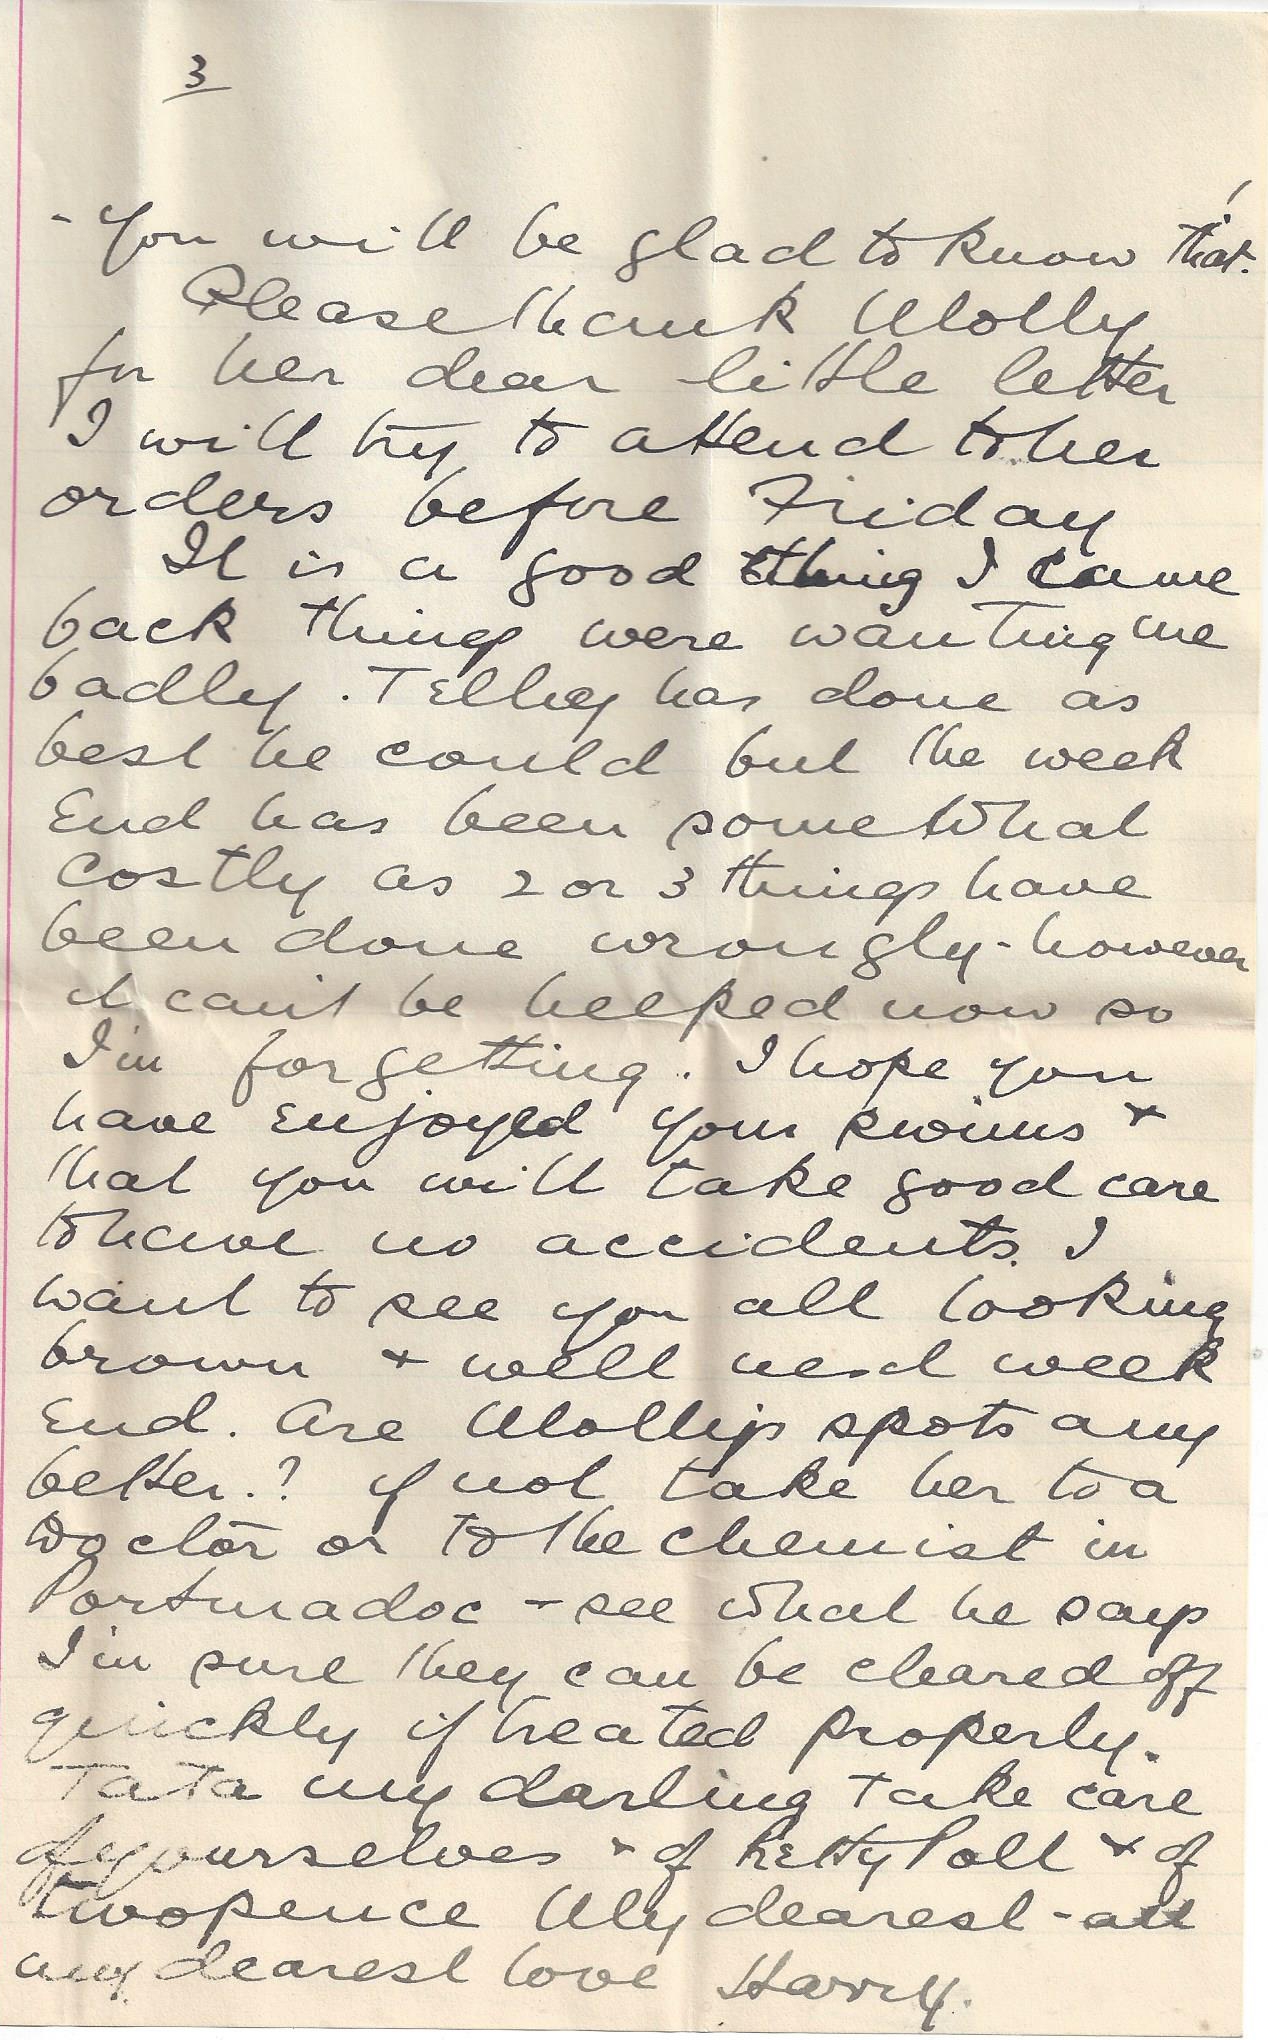 3
- You will be glad to know that.
Please thank Molly
for her dear little letter
I will try to attend to her
orders before Friday
It is a good thing I came
back things were wanting me
badly. Telley has done as
best he could but the week
End has been somewhat
costly as 2 or 3 things have
been done wrongly - however
it can't be helped now so
I'm forgetting. I hope you
have Enjoyed your swims +
that you will take good care
to have no accidents. I
want to see you all looking
brown + well next week
End. Are Mollys spots any
better.? if not take her to a
Doctor or to the chemist in
Portmadoc - see what he says
I'm sure they can be cleared off
quickly if treated properly.
Ta Ta my darling take care
of yourselves + of Betty Poll + of
Twopence My dearest - all
my dearest love Harry.